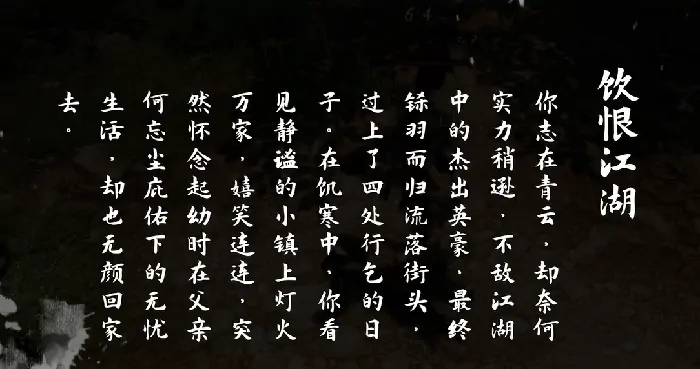 饮恨江湖
你志在青云，却奈何
实力稍逊，不敌江湖
中的杰出英豪，最终
铩羽而归流落街头，
过上了四处行乞的日
子。在饥寒中，你看
见静谧的小镇上灯火
万家，嬉笑连连，突
然怀念起幼时在父亲
何忘尘庇佑下的无忧
生活，却也无颜回家
去。